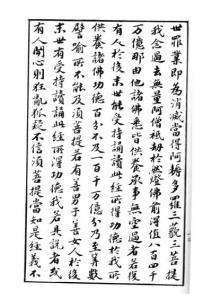 世罪業即為消滅當得阿耨多羅三藐三菩提
我念過去無量阿僧祇劫於然燈佛前得值八百四千
萬億那由他諸佛悉皆供養承事無空過者若復
有人於後末世能受持讀誦此經所得功德於我所
供養諸佛功德百分不及一百千萬億分乃至算數
譬喻所不能及須菩提若有善男子善女人於後
末世有受持讀誦此經所得功德我若具說者或
有人聞心則狂亂狐疑不信須菩提當知是經義不